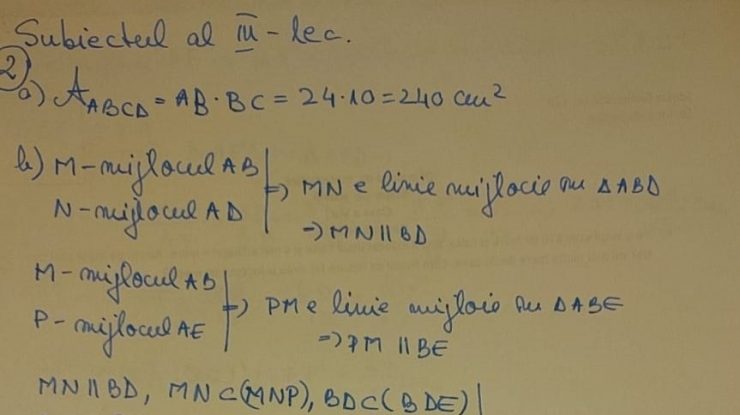 Subiectul al III-lea.
2
a) A ABCD = AB · BC = 24 · 10 = 240 cm²
b) M - mijlocul AB
N - mijlocul AD | => MN e linie mijlocie în △ABD
=> MN || BD
M - mijlocul AB
P - mijlocul AE | => PM e linie mijlocie în △ABE
=> PM || BE
MN || BD, MN ⊂ (MNP), BD ⊂ (BDE) |